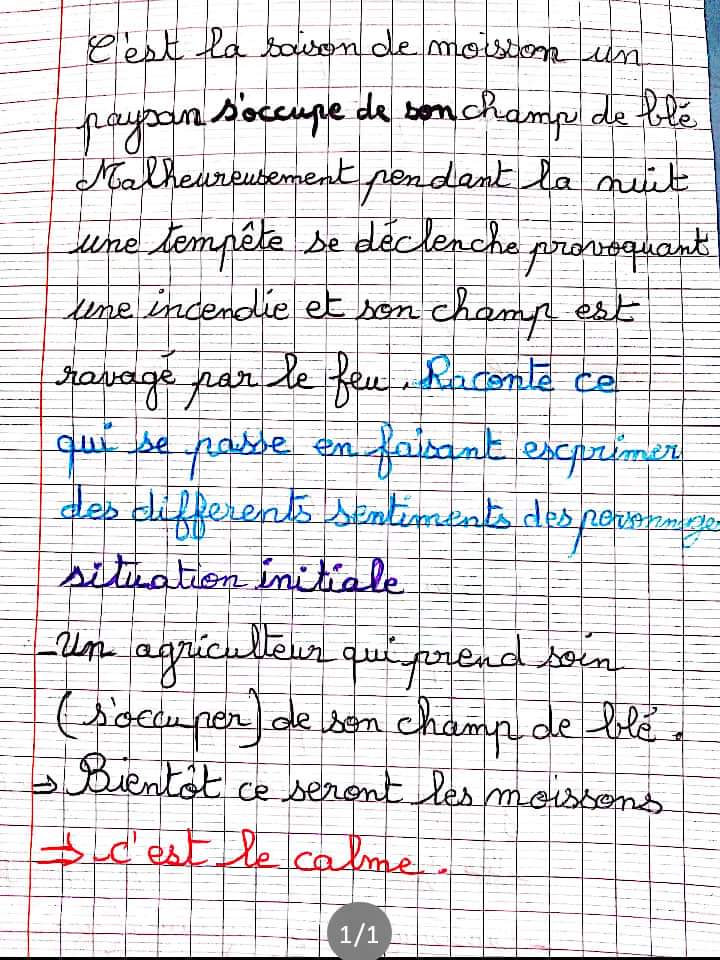 C'est la saison de moisson un
paysan s'occupe de son champ de blé
Malheureusement pendant la nuit
une tempête se déclenche provoquant
une incendie et son champ est
ravagé par le feu. Raconte ce
qui se passe en faisant escprimer
des differents sentiments des personnages
situation initiale
- Un agriculteur qui prend soin
(s'occuper) de son champ de blé.
⇒ Bientôt ce seront les moissons
⇒ c'est le calme.
1/1